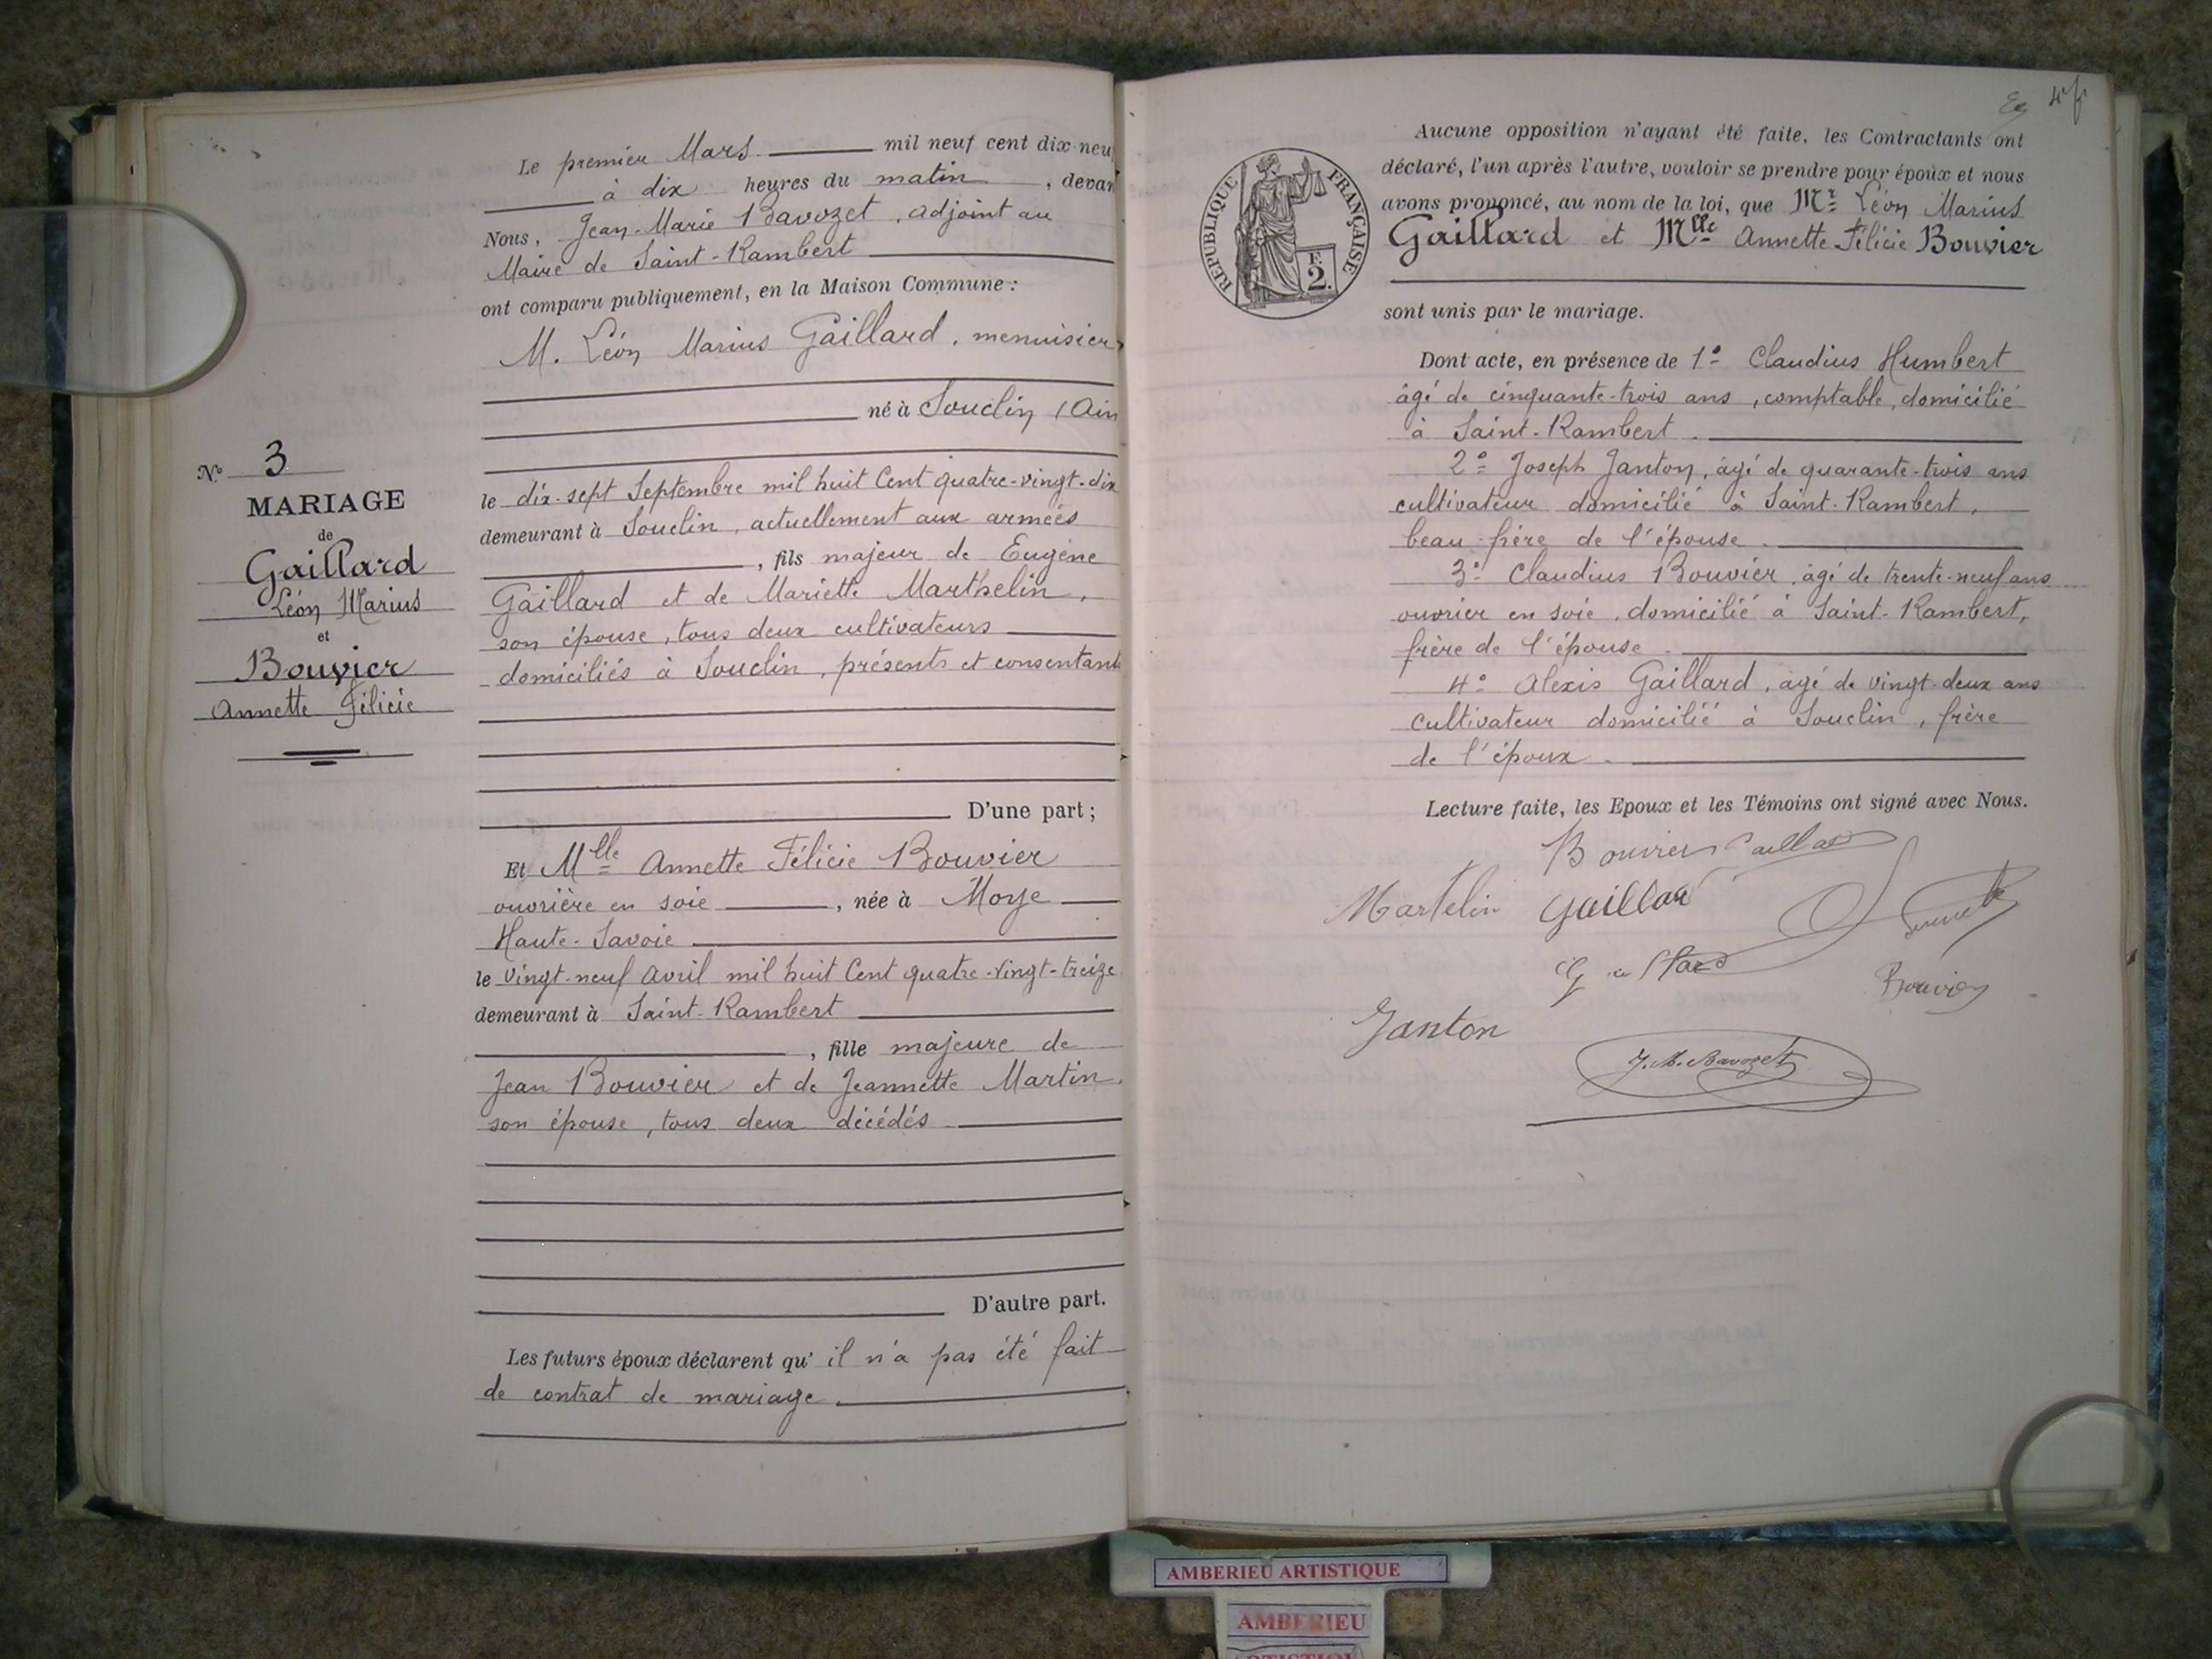 N° 3
MARIAGE
de
Gaillard
Léon Marius
et
Bouvier
Annette Félicie
Le premier Mars mil neuf cent dix-neu
à dix heures du matin, devan
Nous, Jean-Marie Bavozet, adjoint au
Maire de Saint-Rambert
ont comparu publiquement, en la Maison Commune :
M. Léon Marius Gaillard, menuisier
né à Souclin (Ain
le dix-sept Septembre mil huit Cent quatre-vingt-dix
demeurant à Souclin, actuellement aux armées
, fils majeur de Eugène
Gaillard et de Mariette Marthelin,
son épouse, tous deux cultivateurs
domiciliés à Souclin, présents et consentants
D'une part ;
Et Mlle Annette Félicie Bouvier
ouvrière en soie, née à Moye
Haute-Savoie
le vingt-neuf avril mil huit Cent quatre-vingt-treize
demeurant à Saint-Rambert
, fille majeure de
Jean Bouvier et de Jeannette Martin,
son épouse, tous deux décédés
D'autre part.
Les futurs époux déclarent qu'il n'a pas été fait
de contrat de mariage.
REPUBLIQUE FRANÇAISE
F.
2.
Aucune opposition n'ayant été faite, les Contractants ont
déclaré, l'un après l'autre, vouloir se prendre pour époux et nous
avons prononcé, au nom de la loi, que Mr Léon Marius
Gaillard et Mlle Annette Félicie Bouvier
sont unis par le mariage.
Dont acte, en présence de 1° Claudius Humbert
âgé de cinquante-trois ans, comptable, domicilié
à Saint-Rambert.
2° Joseph Janton, âgé de quarante-trois ans
cultivateur domicilié à Saint-Rambert,
beau-frère de l'épouse.
3° Claudius Bouvier, âgé de trente-neuf ans
ouvrier en soie, domicilié à Saint-Rambert,
frère de l'épouse.
4° Alexis Gaillard, âgé de vingt-deux ans
cultivateur domicilié à Souclin, frère
de l'époux.
Lecture faite, les Epoux et les Témoins ont signé avec Nous.
Bouvier Gaillard
Martelin Gaillard
Gaillard
Bouvier
Janton
J.M. Bavozet
AMBERIEU ARTISTIQUE
AMBERIEU
ARTISTIQU